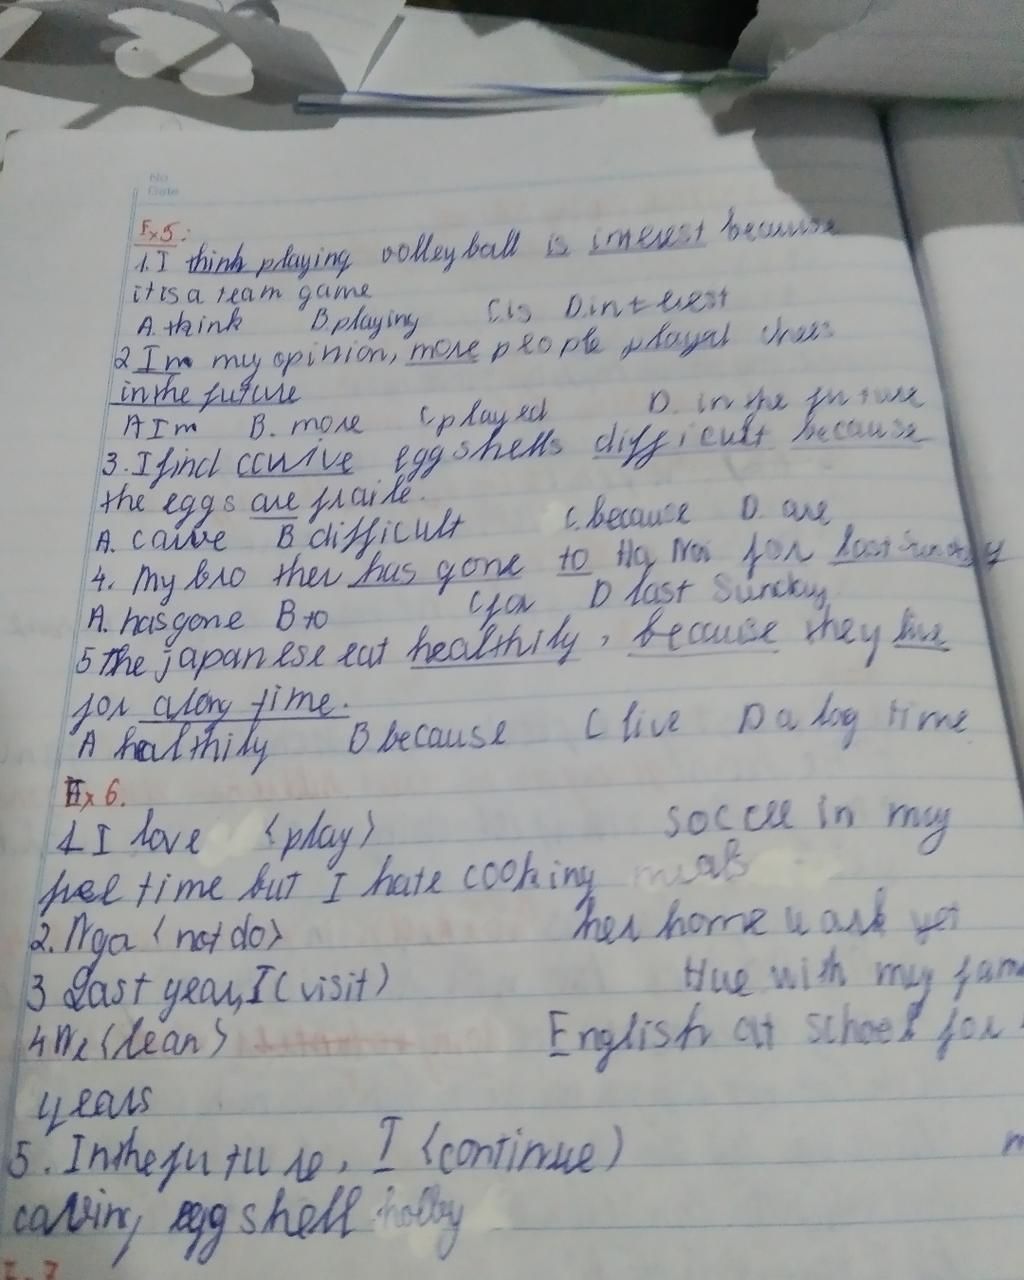 No
Date
Ex5:
1. I think playing volleyball is interest because
it is a team game
A. think B. playing C. is D. interest
2 Im my opinion, more people played chess
in the future
A Im B. more C played D. in the future
3. I find carve eggshells difficult because
the eggs are fraile.
A. carve B difficult C. because D. are
4. My bro ther has gone to Ha Noi for last Sunday
A. has gone B to C for D last Sunday
5 The japanese eat healthily, because they live
for along time.
A healthily B because C live D a log time
Ex 6.
1. I love <play> soccer in my
free time but I hate cooking meals
2. Nga <not do> her home work yet
3 Last year, I (visit) Hue with my fam
4 We <lean> English at school for
years
5. In the future, I <continue)
carving egg shell hobby